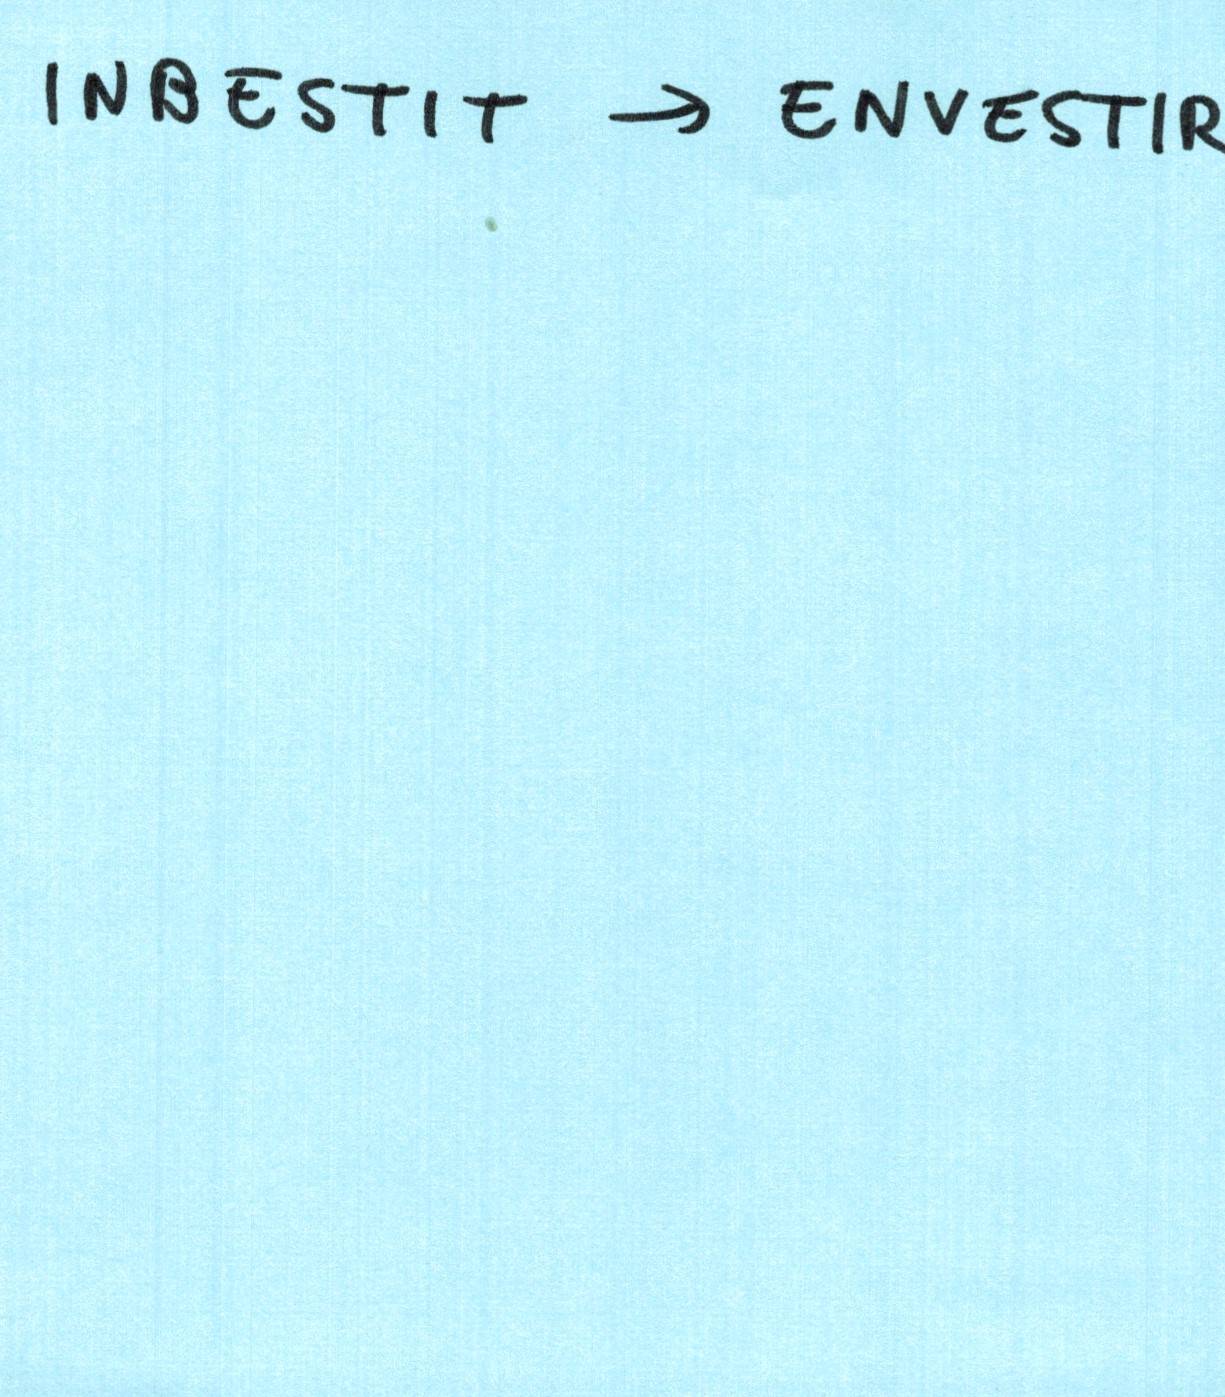 INBESTIT → ENVESTIR